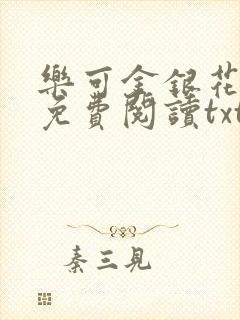 樂可金銀花
免費閱讀txt
秦三見